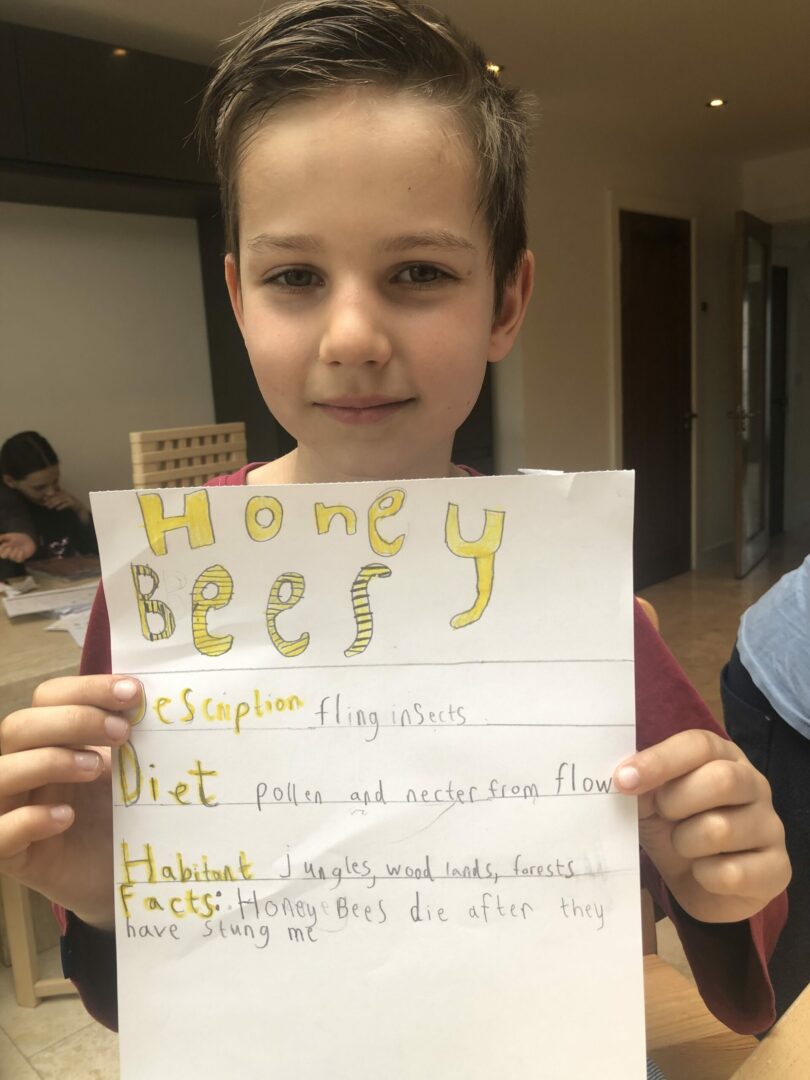 Honey
Bees
Description fling insects
Diet pollen and necter from flow
Habitant jungles, wood lands, forests
Facts: Honey Bees die after they
have stung me